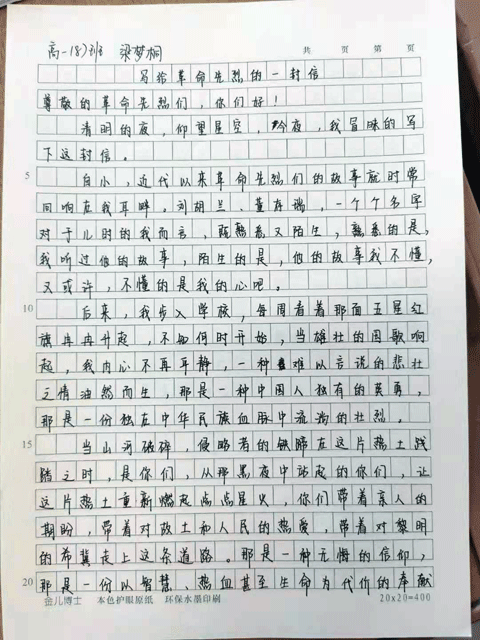 高一(8)班 梁梦桐
共 页 第 页
写给革命先烈的一封信
尊敬的革命先烈们,你们好!
清明的夜,仰望星空,今夜,我冒昧的写
下这封信。
5 自小,近代以来革命先烈们的故事就时常
回响在我耳畔。刘胡兰、董存瑞,一个个名字
对于儿时的我而言,既熟悉又陌生,熟悉的是,
我听过他的故事,陌生的是,他的故事我不懂,
又或许,不懂的是我的心吧。
10 后来,我步入学校,每周看着那面五星红
旗冉冉升起,不知何时开始,当雄壮的国歌响
起,我内心不再平静,一种难以言说的悲壮
之情油然而生,那是一种中国人独有的英勇,
那是一份独在中华民族血脉中流淌的壮烈。
15 当山河破碎,侵略者的铁蹄在这片热土践
踏之时,是你们,从那黑夜中站起的你们,让
这片热土重新燃起点点星火,你们带着亲人的
期盼,带着对故土和人民的热爱,带着对黎明
的希冀走上这条道路。那是一种无悔的信仰,
20 那是一份以智慧、热血甚至生命为代价的奉献
金儿博士 本色护眼原纸 环保水墨印刷 20x20=400